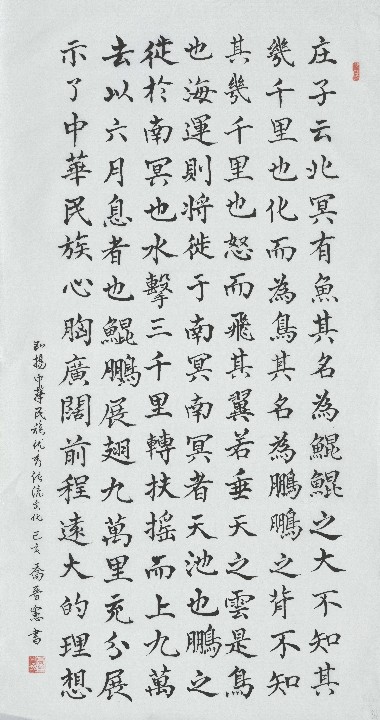 庄子云北冥有魚其名為鯤鯤之大不知其
幾千里也化而為鳥其名為鵬鵬之背不知
其幾千里也怒而飛其翼若垂天之雲是鳥
也海運則將徙于南冥南冥者天池也鵬之
徙於南冥也水擊三千里轉扶摇而上九萬
去以六月息者也鯤鵬展翅九萬里充分展
示了中華民族心胸廣闊前程遠大的理想
弘揚中華民族优秀传流文化 己亥 喬晋憲書